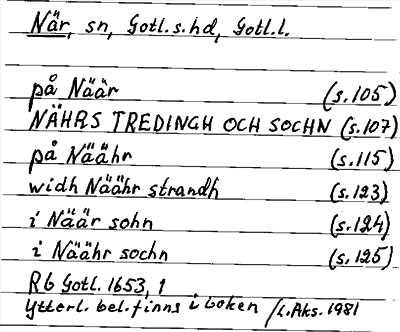 När, sn, Gotl.s.hd, Gotl.l.
på Näär (s.105)
NÄHRS TREDINGH OCH SOCHN (s.107)
på Näähr (s.115)
widh Näähr strandh (s.123)
i Näär sohn (s.124)
i Näähr sochn (s.125)
Rb Gotl. 1653, 1
Ytterl. bel. finns i boken /L.Aks. 1981